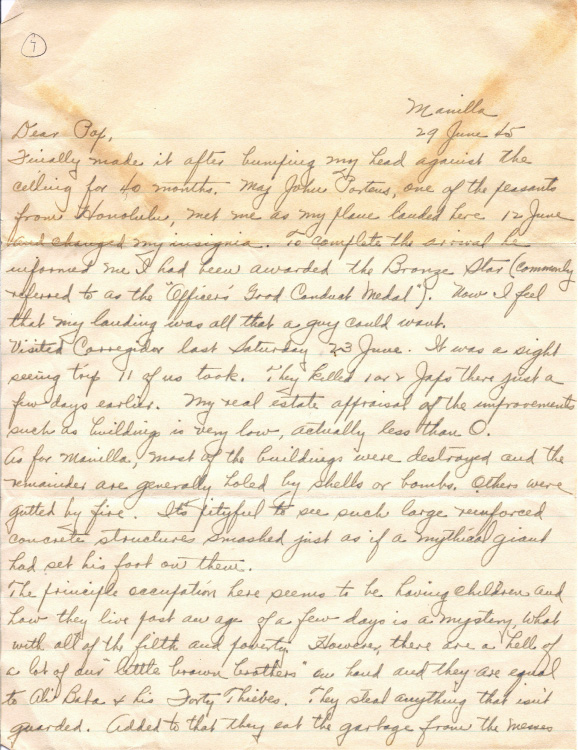 7
Manilla
Dear Pop,
29 June 45
Finally made it after bumping my head against the
ceiling for 40 months. Maj John Porteus, one of the peasants
from Honolulu, met me as my plane landed here 12 June
and changed my insignia. To complete the arrival he
informed me I had been awarded the Bronze Star (commonly
referred to as the "Officer's Good Conduct Medal"). Now I feel
that my landing was all that a guy could want.
Visited Corregidor last Saturday, 23 June. It was a sight
seeing trip 11 of us took. They killed 1 or 2 Japs there just a
few days earlier. My real estate appraisal of the improvements
such as buildings is very low, actually less than 0.
As for Manilla, most of the buildings were destroyed and the
remainder are generally holed by shells or bombs. Others were
gutted by fire. Its pityful to see such large reinforced
concrete structures smashed just as if a mythical giant
had set his foot on them.
The principle occupation here seems to be having children and
how they live past an age of a few days is a mystery, what
with all of the filth and poverty. However, there are a hell of
a lot of our "little brown brothers" on hand and they are equal
to Ali Baba & his Forty Thieves. They steal anything that isn't
guarded. Added to that they eat the garbage from the messes